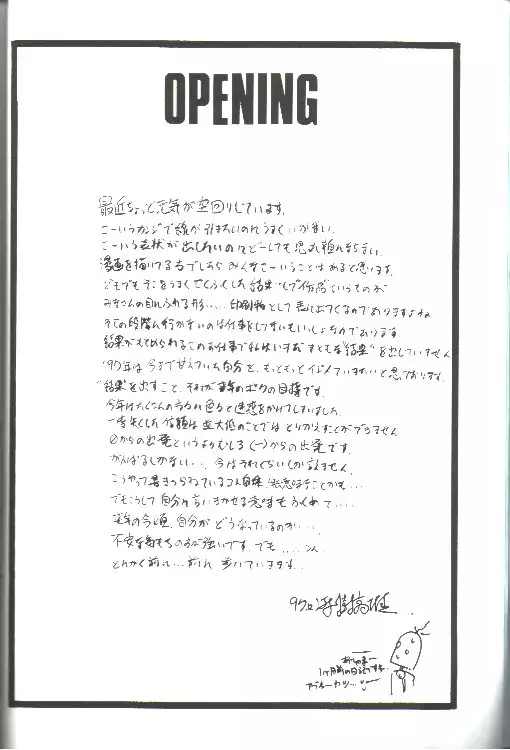 OPENING
最近ちょっと元気が空回りしています。
こーいうカンジで線が引きたいのに、うまくいかない。
こーいう表状が出したいのにどーしても思れ通んならない。
漫画を描いてる方でしたら みんなこーいうことはあると思います。
でもでもそこをうまくてくふうした結果 "しプ作品" というものが
みなさんの目にふれる形…… 印刷物として表に出てくるのでありますよね
その段階に行かないのは仕事をしてないもいっしょなのであります。
結果がもとめられるこのお仕事で私はいまだ まともな"結果"を出していません
'97年は今まで甘えていた自分を、もっともっとイジメていきたいと思っております。
"結果"を出すこと、それが来年のボクの目標です。
今年はたくさんの方々に色々と迷惑をかけてしまいました。
一度失くした信頼は並大低のことでは とりかえすことができません
0からの出発というよりむしろ (ー)からの出発です。
がんばるしかない…、今はそれくらいしか言えません。
こうやって書きつらねている事自体
でもこうして自分に言いきかせる意味もふくめて……
来年の今頃、自分がどうなっているのか…、
不安な気もちのほうが強いです。でも……、
とにかく前に…前に 歩いていきます。
1ヶ月前の日記ですね